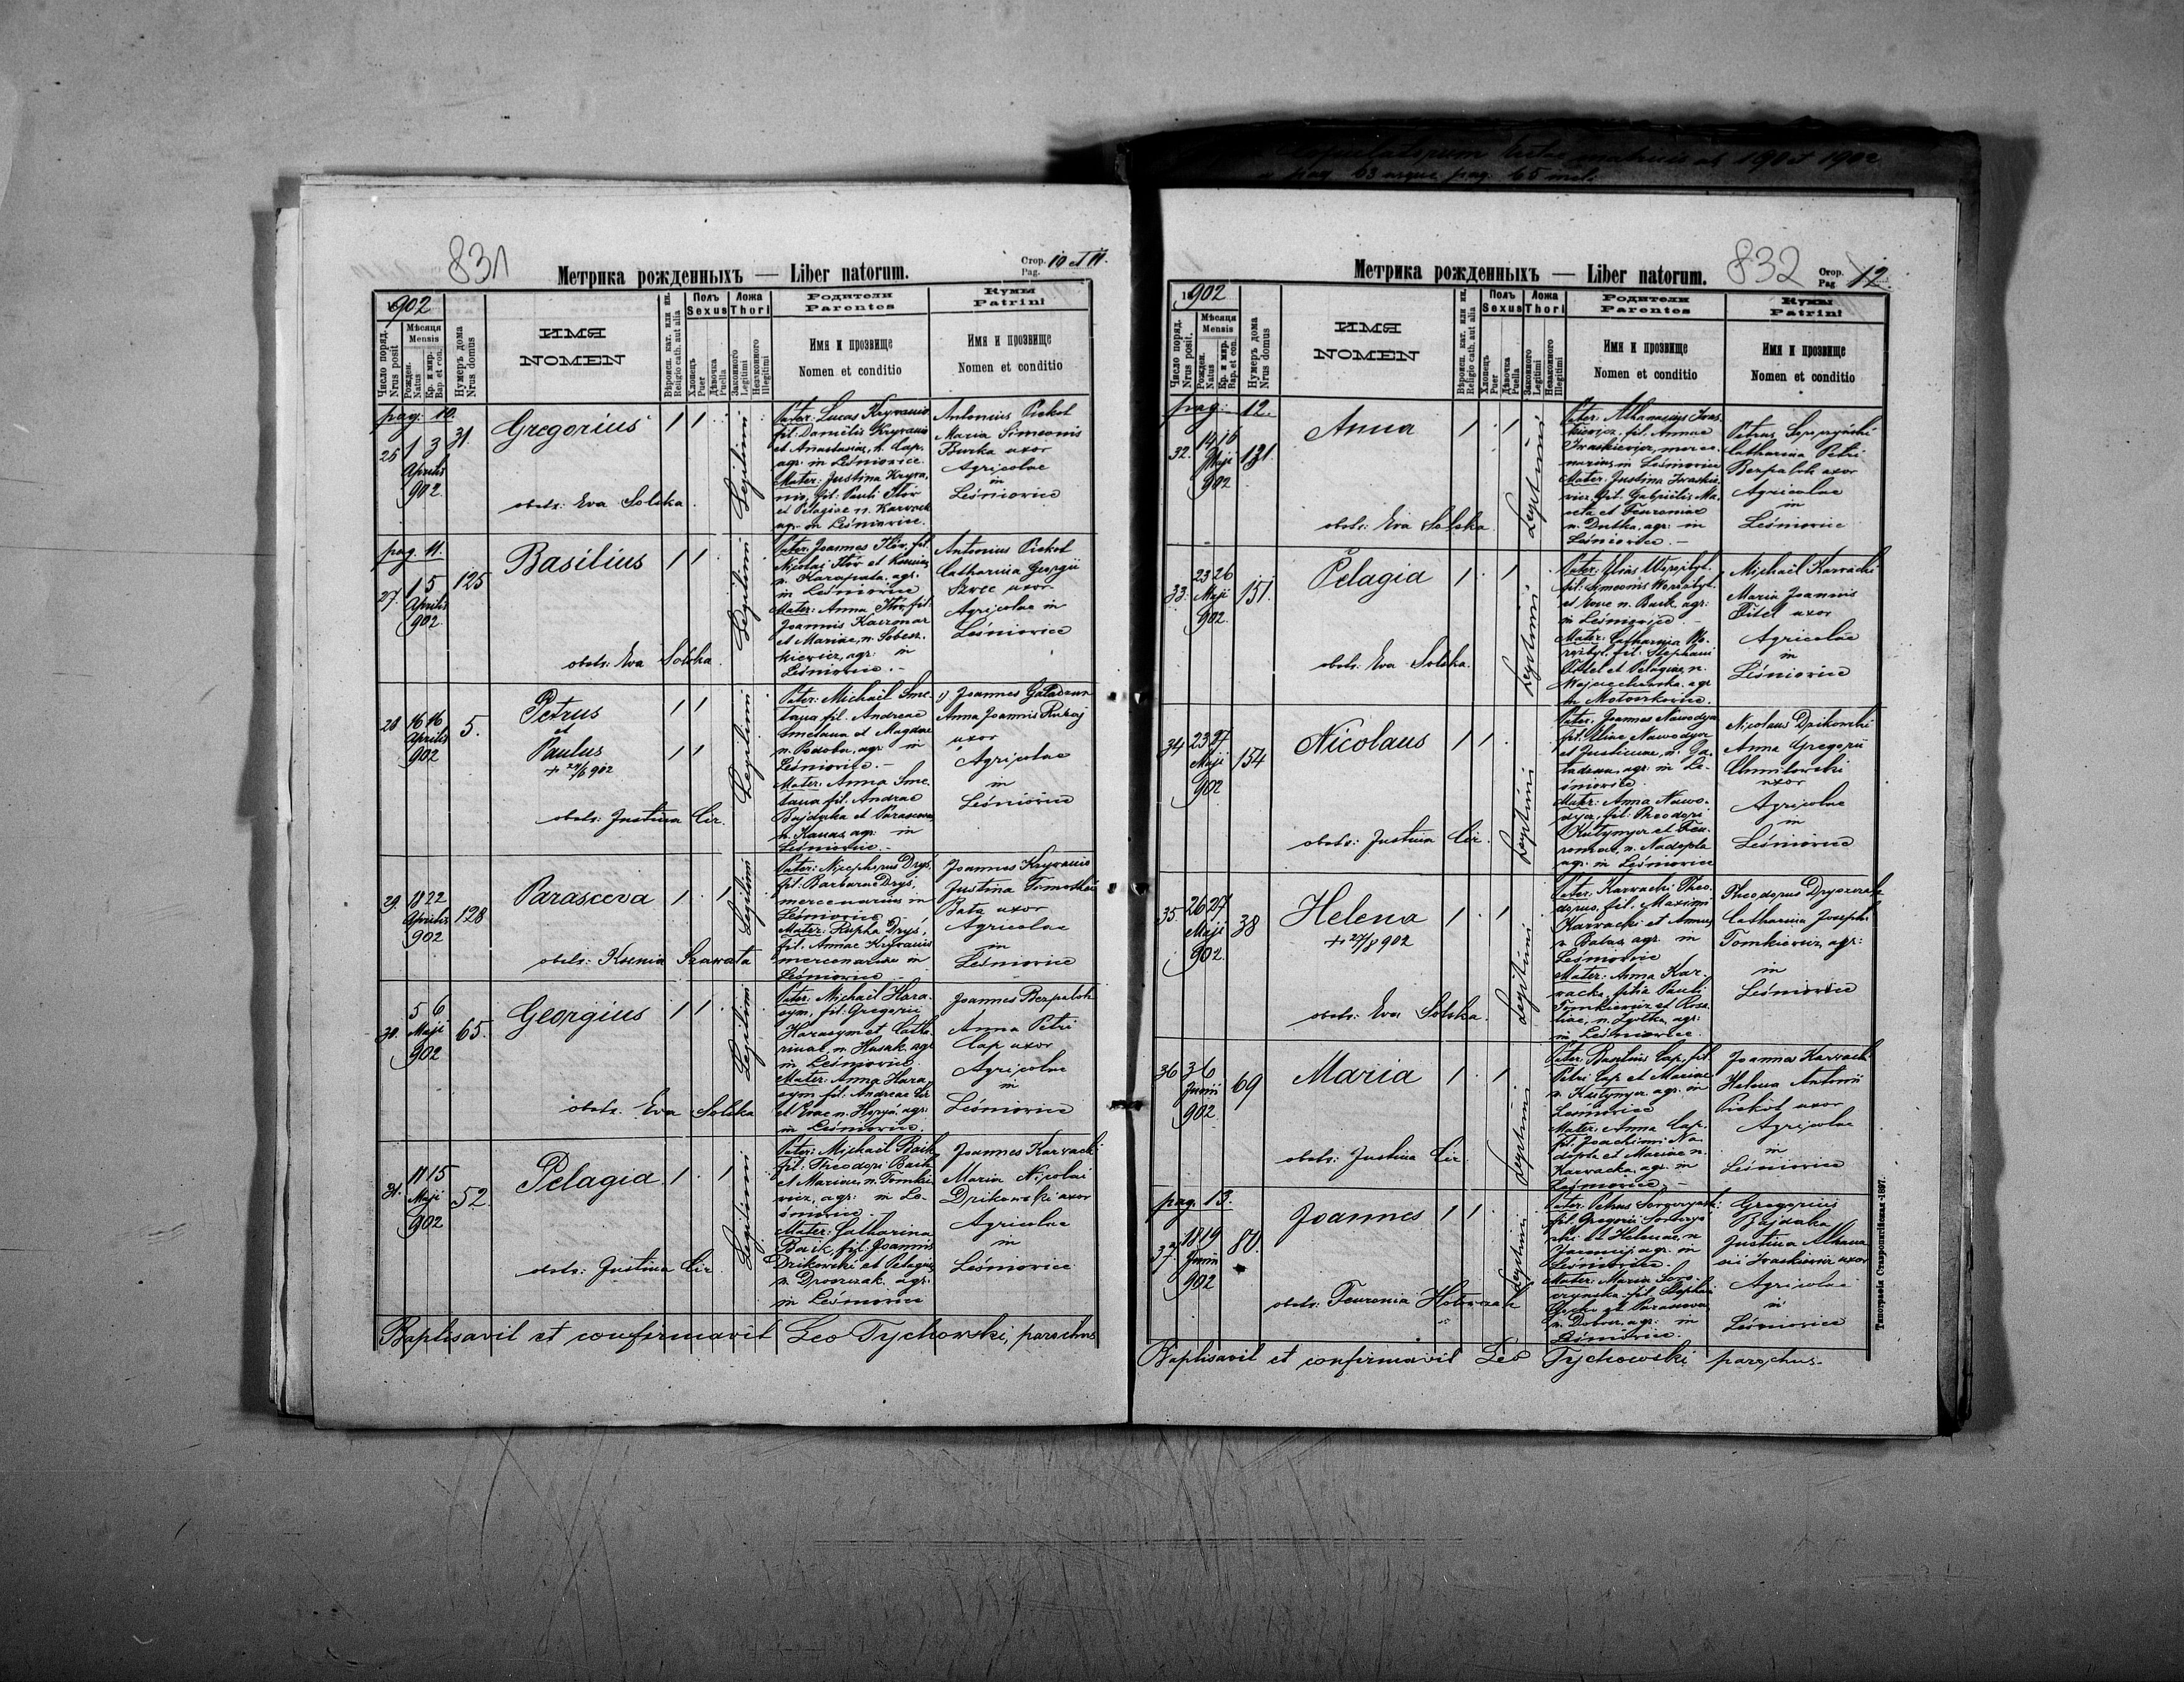 831
Метрика рожденныхъ — Liber natorum.
Стор. Pag. 10 et 11.
1902
Число поряд. Nrus posit
Мѣсяця Mensis
Рожден. Natus
Кр. и мир. Bap. et con.
Нумеръ дома Nrus domus
ИМЯ
NOMEN
Вѣроисп. кат. или ин. Religio cath. aut alia
Полъ
Sexus
Хлопець Puer
Дѣвочка Puella
Ложа
Thori
Законного Legitimi
Незаконного Illegitimi
Родители
Parentes
Имя и прозвище
Nomen et conditio
Кумы
Patrini
Имя и прозвище
Nomen et conditio
pag. 10.
1 3
Aprilis
902
31.
Gregorius
1 1
obste: Eva Solska
Legitimi
Pater: Lucas Krywanio
fil: Danielis Krywanio
et Anastasiae, n. Cap,
agr. in Leśniowice.
Mater: Justina Krywa
nio, fil: Pauli
et Pelagiae n.
agr. in Leśniowice.
Antonius Piekot
Maria Simeonis
Burka uxor
Agricolae
in
Leśniowice
pag. 11.
27.
1 5
Aprilis
902
125
Basilius
1 1
obste: Eva Solska
Legitimi
Pater: Joannes
Nicolai
n. Karapata, agr.
in Leśniowice
Mater: Anna
Joannis Kaczmar
et Mariae, n. Sobesz
kiewicz, agr: in
Leśniowice.-
Antonius Piekot
Catharina Georgii
Szwec uxor
Agricolae in
Leśniowice
28
16 16
Aprilis
902
5.
Petrus
et
Paulus
1 1
1 1
obste: Justina Cir.
Legitimi
Pater: Michaël Sme
tana fil. Andreae
Smetana et Magdae
n. Podoba, agr. in
Leśniowice.-
Mater: Anna Sme
tana fil. Andreae
Bajdaka et Parascevae
n. Kanas, agr: in
Leśniowice.-
Joannes Galadzun
Anna Joannis
uxor
Agricolae
in
Leśniowice
29
18 22
Aprilis
902
128
Parasceva
1 1
obste: Ksenia Szawata
Legitimi
Pater: Nicephorus Drys,
fil: Barbarae Drys,
mercenarius in
Leśniowice
Mater: Drys,
fil. Annae Krywanio
mercenariae in
Leśniowice
Joannes Krywanio
Justina
uxor
Agricolae
in
Leśniowice
30.
5 6
Maji
902
65.
Georgius
1 1
obste. Eva Solska
Legitimi
Pater: Michaël Hara
sym, fil: Gregorii
Harasym et Catha
rinae n. Husak agr
in Leśniowice
Mater: Anna Hara
sym fil: Andreae Cir
et Evae n. agr:
in Leśniowice.
Joannes Bezpalok
Anna Petri
Cap uxor
Agricolae
in
Leśniowice
31.
11 15
Maji
902
52.
Pelagia
1 1
obste: Justina Cir
Legitimi
Pater: Michaël Baik
fil: Theodori Baik
et Mariae, n. Tomkie
wicz, agr: in Le-
śniowice.-
Mater: Catharina
Baik, fil: Joannis
Dzikowski et Pelagiae
n. Drozczak agr.
in Leśniowice
Joannes Karwacki
Maria Nicolai
Dzikowski uxor
Agricolae
in
Leśniowice
Baptisavit et confirmavit Leo Tychowski, parochus
832
Метрика рожденныхъ — Liber natorum.
Стор. Pag 12.
1902
Число поряд. Nrus posit.
Мѣсяця Mensis
Рожден. Natus
Кр. и мир. Bap. et con.
Нумеръ дома Nrus domus
ИМЯ
NOMEN
Вѣроисп. кат. или ин. Religio cath. aut alia
Полъ
Sexus
Хлопець Puer
Дѣвочка Puella
Ложа
Thori
Законного Legitimi
Незаконного Illegitimi
Родители
Parentes
Имя и прозвище
Nomen et conditio
Кумы
Patrini
Имя и прозвище
Nomen et conditio
pag: 12.
32.
14 16
Maji
902
131.
Anna
1 1
obste: Eva Solska
Legitimi
Pater: Athanasius Iwas
kiewicz, fil. Annae
Iwaskiewicz, merce
narius in Leśniowice
Mater: Justina Iwaskie
wicz, fil. Gabrielis Ma
et Feuroniae
n. Dutka, agr: in
Leśniowice.-
Petrus
Catharina Petri
Bezpalok uxor
Agricolae
in
Leśniowice
33.
23 26
Maji
902.
151.
Pelagia
1 1
obste: Eva Solska.
Legitimi
Pater: Elias
fil: Simeonis
et Evae n. agr:
in Leśniowice.-
Mater: Catharina
fil. Stephani
Pitel et Pelagiae, n.
Wojciechowska, agr
in
Michaël Karwacki
Maria Joannis
Pitel uxor
Agricolae
in
Leśniowice
34
23 27
Maji
902
154
Nicolaus
1 1
obste: Justina Cir.
Legitimi
Pater: Joannes Nawodyn
fil. Eliae Nawodyn
et Justinae, n. Ga
ladzun, agr: in Le-
śniowice.
Mater: Anna Nawo
dyn, fil: Theodori
et Feu
roniae, n. Nadopta
agr: in Leśniowice
Nicolaus Dzikowski
Anna Gregorii
Chmilowski
uxor
Agricolae
in
Leśniowice
35
26 27
Maji
902.
38
Helena
1 1
obste: Eva Solska.
Legitimi
Pater: Karwacki Theo
dorus, fil. Maximi
Karwacki et Annae
n Balas, agr. in
Leśniowice
Mater: Anna Kar
wacka, filia Pauli
Tomkiewicz et Rosa
liae, n. agr:
in Leśniowice.
Theodorus
Catharina Josephi
Tomkiewicz, agr:
in
Leśniowice
36
3 6
Junii
902
69
Maria
1 1
obste: Justina Cir
Legitimi
Pater: Basilius Cap, fil.
Petri Cap et Mariae
n. agr. in
Leśniowice
Mater: Anna Cap,
fil. Joachimi Na
dopta et Mariae n.
Karwacka, agr. in
Leśniowice.-
Joannes Karwacki
Helena Antonii
Piekot uxor
Agricolae
in
Leśniowice
pag. 13.
37.
18 19
Junii
902
80.
Joannes
1 1
obste: Feuronia
Legitimi
Pater: Petrus
fil. Gregorii
et Helenae, n
agr. in
Leśniowice.
Mater: Maria
fil. Stephani
et Parascevae
n. agr: in
Leśniowice.
Gregorius
Bajdaka
Justina Athana
sii Iwaskiewicz uxor
Agricolae
in
Leśniowice
Baptisavit et confirmavit Leo Tychowski parochus.
Типографія Ставропигійская-1897.